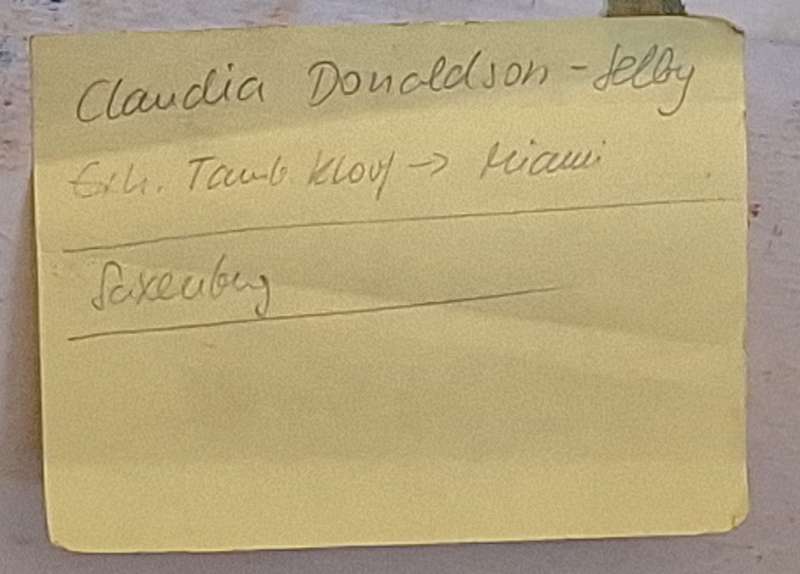 Claudia Donaldson-Selby
Exh. Tamb. Kloof → Miami
Saxenburg